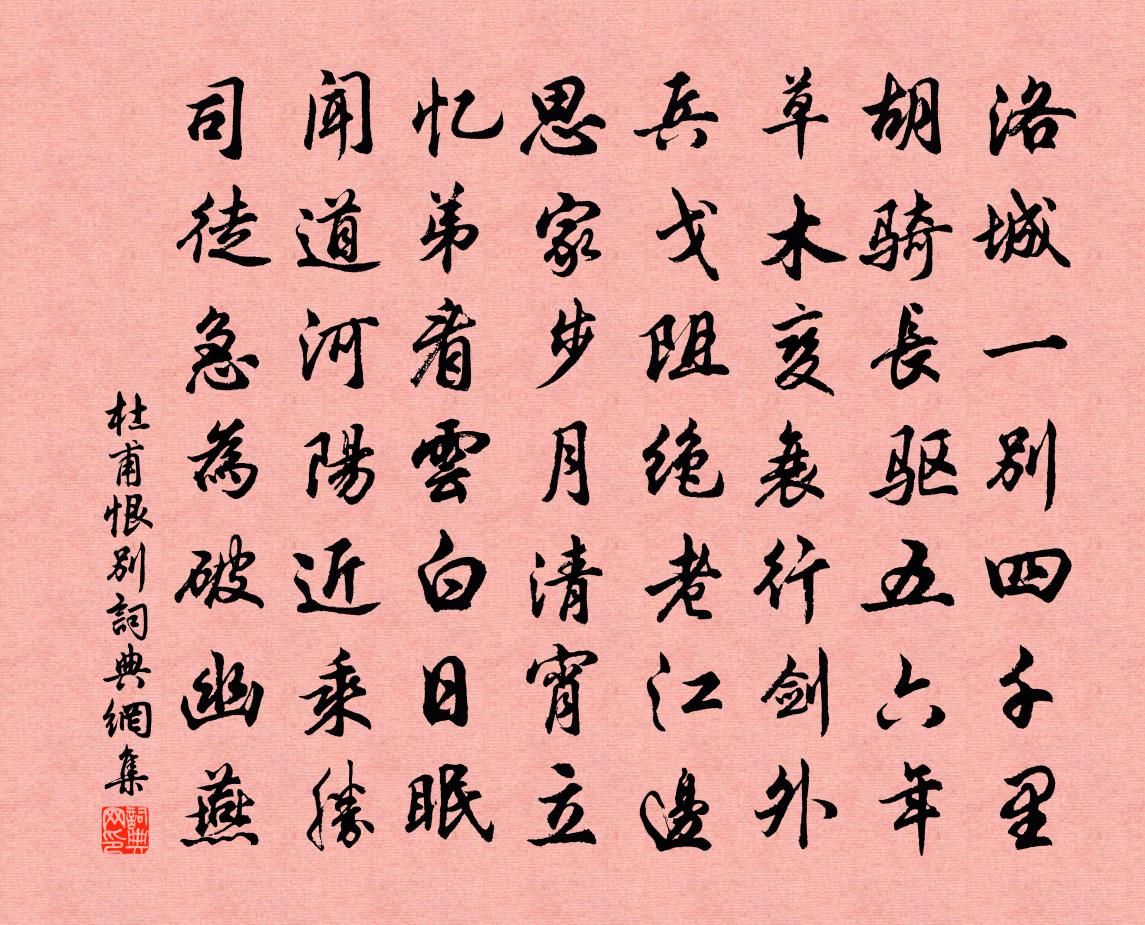 洛城一别四千里
胡骑長驱五六年
草木变衰行剑外
兵戈阻绝老江邊
思家步月清宵立
忆弟看雲白日眠
闻道河陽近乘勝
司徒急為破幽燕
杜甫恨别詞典網集
詞典网印